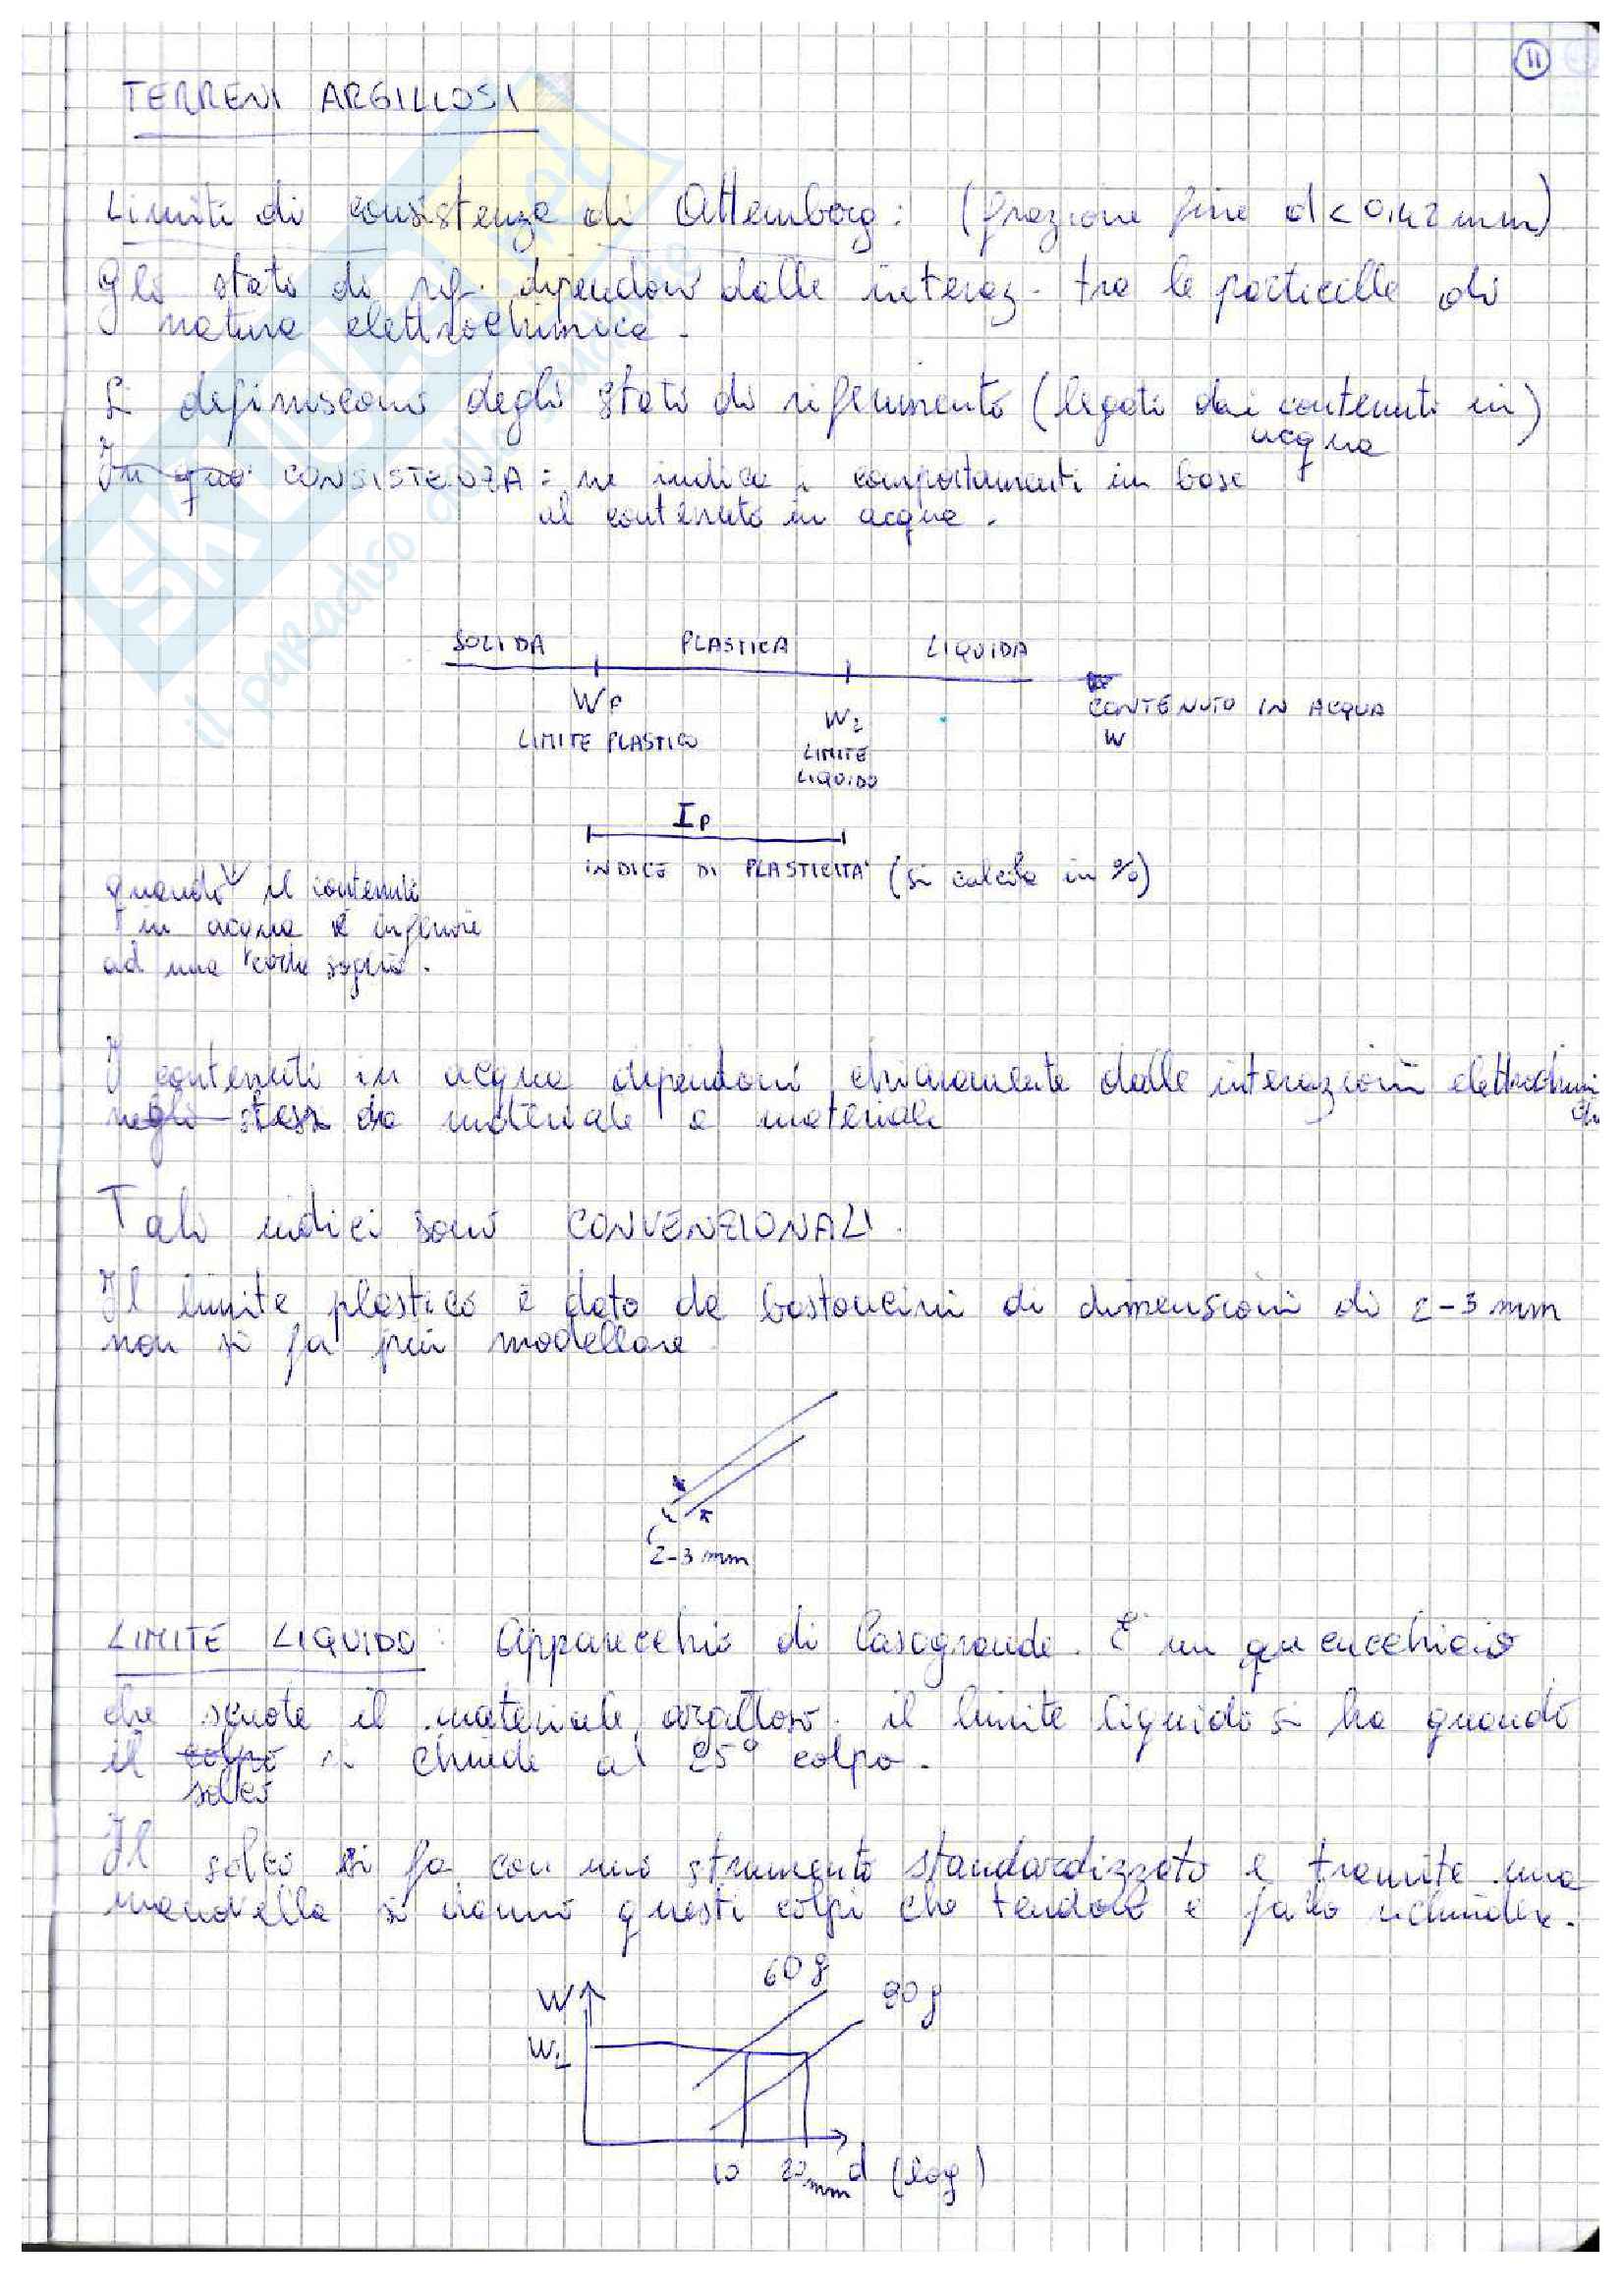 11
TERRENI ARGILLOSI
Limiti di consistenza di Attemberg: (frazione fine d < 0,42 mm)
Gli stati di rif. dipendono dalle interaz. tra le particelle di
natura elettrochimica.
Si definiscono degli stati di riferimento (legati dai contenuti in)
acqua
In CONSISTENZA: ne indica i comportamenti in base
al contenuto in acqua.
SOLIDA PLASTICA LIQUIDA
WP WL CONTENUTO IN ACQUA
LIMITE PLASTICO LIMITE W
LIQUIDO
IP
INDICE DI PLASTICITA' (si calcola in %)
quando il contenuto
in acqua è inferiore
ad una certa soglia.
I contenuti in acqua dipendono chiaramente dalle interazioni elettrochimi
negli stessi da materiale a materiale
che
Tali indici sono CONVENZIONALI.
Il limite plastico è dato da bastoncini di dimensioni di 2-3 mm
non si fa più modellare
2-3 mm
LIMITE LIQUIDO: Apparecchio di Casagrande. E' un
che scuote il materiale argilloso. il limite liquido si ha quando
il colpo si chiude al 25° colpo.
solco
Il solco si fa con uno strumento standardizzato e tramite una
manovella si danno questi colpi che tendono a farlo richiudere.
60 g
W 80 g
WL
10 20 mm d (log)
SKUOLA.net
il paradiso dello studente